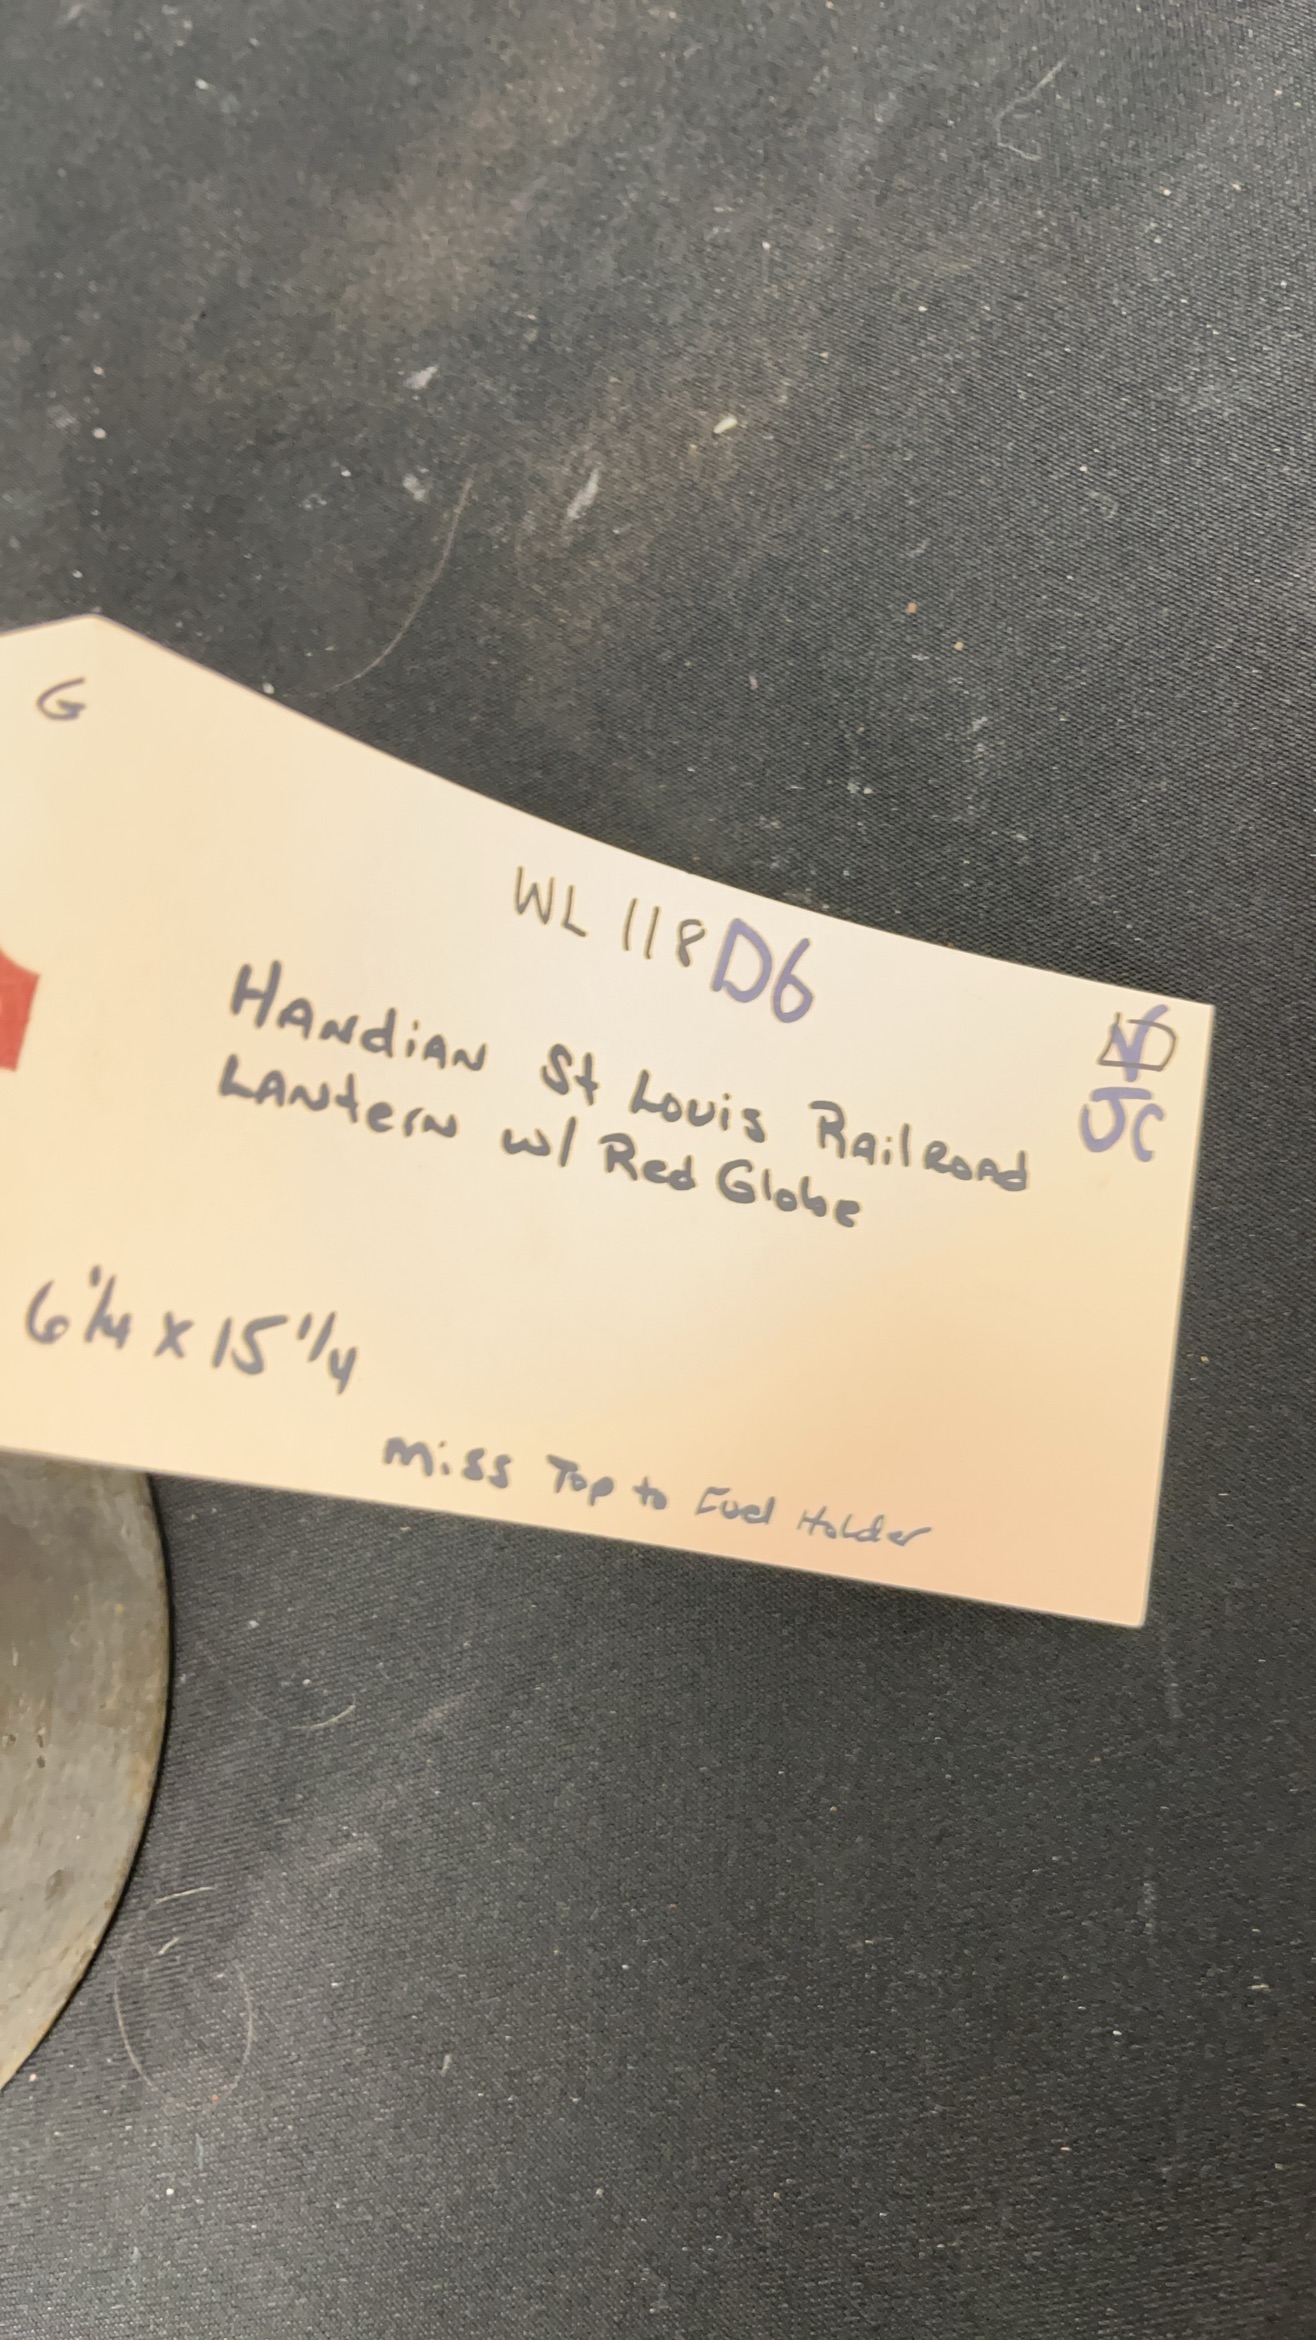 G
WL 118 D6
JC
HANdiAN St Louis RailRoad
LANtern w/ Red Globe
6 1/4 x 15 1/4
Miss Top to Fuel Holder